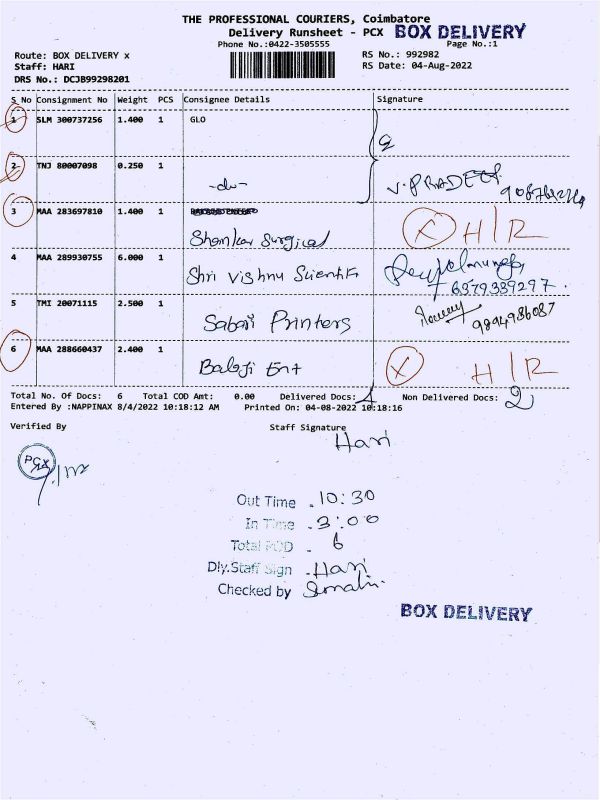 THE PROFESSIONAL COURIERS, Coimbatore
Delivery Runsheet - PCX BOX DELIVERY
Phone No.:0422-3505555 Page No.:1
Route: BOX DELIVERY x RS No.: 992982
Staff: HARI RS Date: 04-Aug-2022
DRS No.: DCJB99298201
S No Consignment No Weight PCS Consignee Details Signature
1 SLM 300737256 1.400 1 GLO
2 TNJ 80007098 0.250 1
-do- V. PRADEEP
3 MAA 283697810 1.400 1
Shankar Surgical X H/R
4 MAA 289930755 6.000 1
Shri Vishnu Scientific 6379339297
5 TMI 20071115 2.500 1
Sabari Printers 9894986087
6 MAA 288660437 2.400 1
Balaji Ent X H/R
Total No. Of Docs: 6 Total COD Amt: 0.00 Delivered Docs: 4 Non Delivered Docs: 2
Entered By :NAPPINAX 8/4/2022 10:18:12 AM Printed On: 04-08-2022 10:18:16
Verified By Staff Signature
Hari
PCX
Out Time - 10:30
In Time - 3:00
Total POD - 6
Dly.Staff Sign - Hari
Checked by
BOX DELIVERY